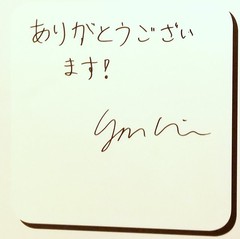 ありがとうござい
ます!